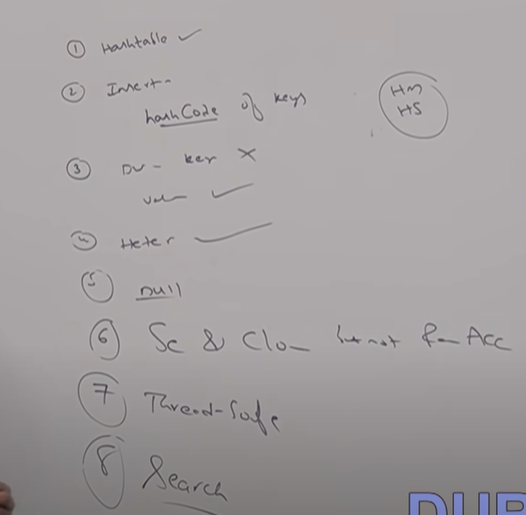 ① Hashtable ✓
② Insert-
hashCode of keys
HM
HS
③ DU - key ✗
Val ✓
④ Heter ✓
⑤ Null
⑥ Se & Clo but not Ran Acc
⑦ Thread-Safe
⑧ Search
DUR